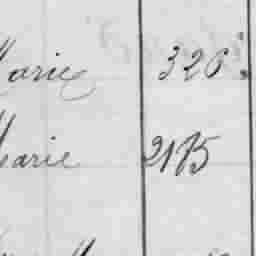 Marie 326
Marie 2175